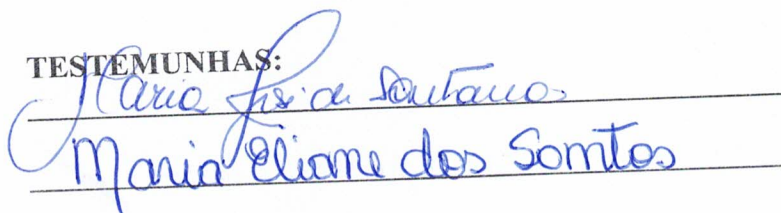 TESTEMUNHAS:
Maria de Santana
Maria Eliane dos Santos